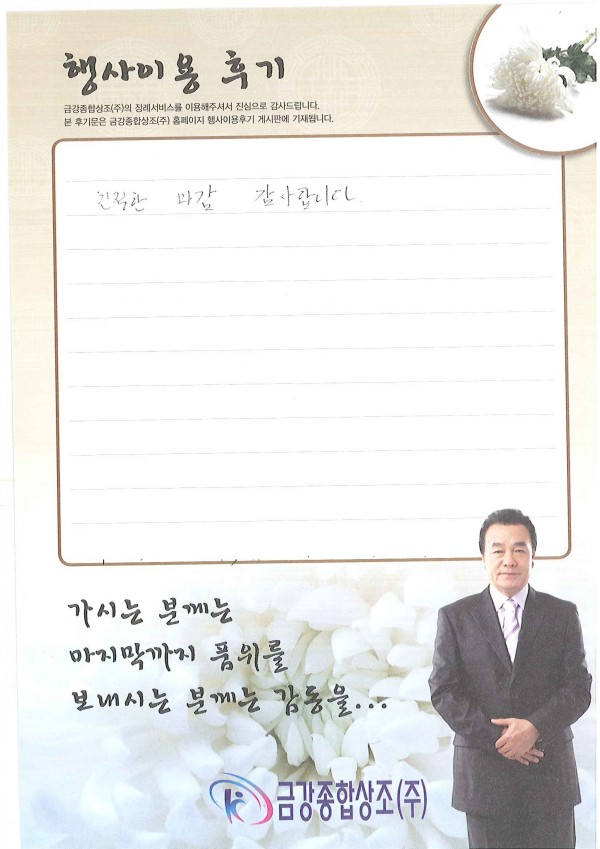 행사이용 후기
금강종합상조(주)의 장례서비스를 이용해주셔서 진심으로 감사드립니다.
본 후기문은 금강종합상조(주) 홈페이지 행사이용후기 게시판에 기재됩니다.
감사합니다.
가시는 분께는
마지막까지 품위를
보내시는 분께는 감동을...
금강종합상조(주)